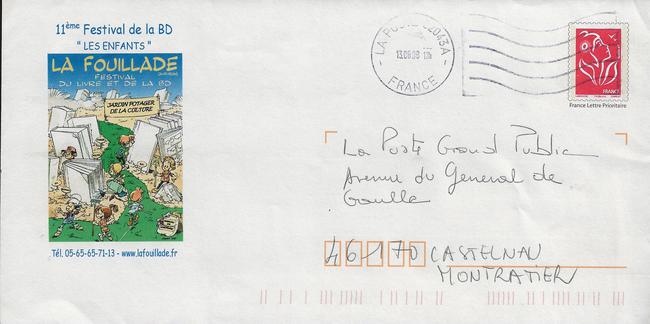 11ème Festival de la BD
" LES ENFANTS "
LA FOUILLADE
FESTIVAL
DU LIVRE ET DE LA BD
JARDIN POTAGER
DE LA CULTURE
Tél. 05-65-65-71-13 - www.lafouillade.fr
LA POSTE 32043A
13.06.08
FRANCE
FRANCE
France Lettre Prioritaire
La Poste Grand Public
Avenue du General de
Gaulle
46-170 CASTELNAU
MONTRATIER